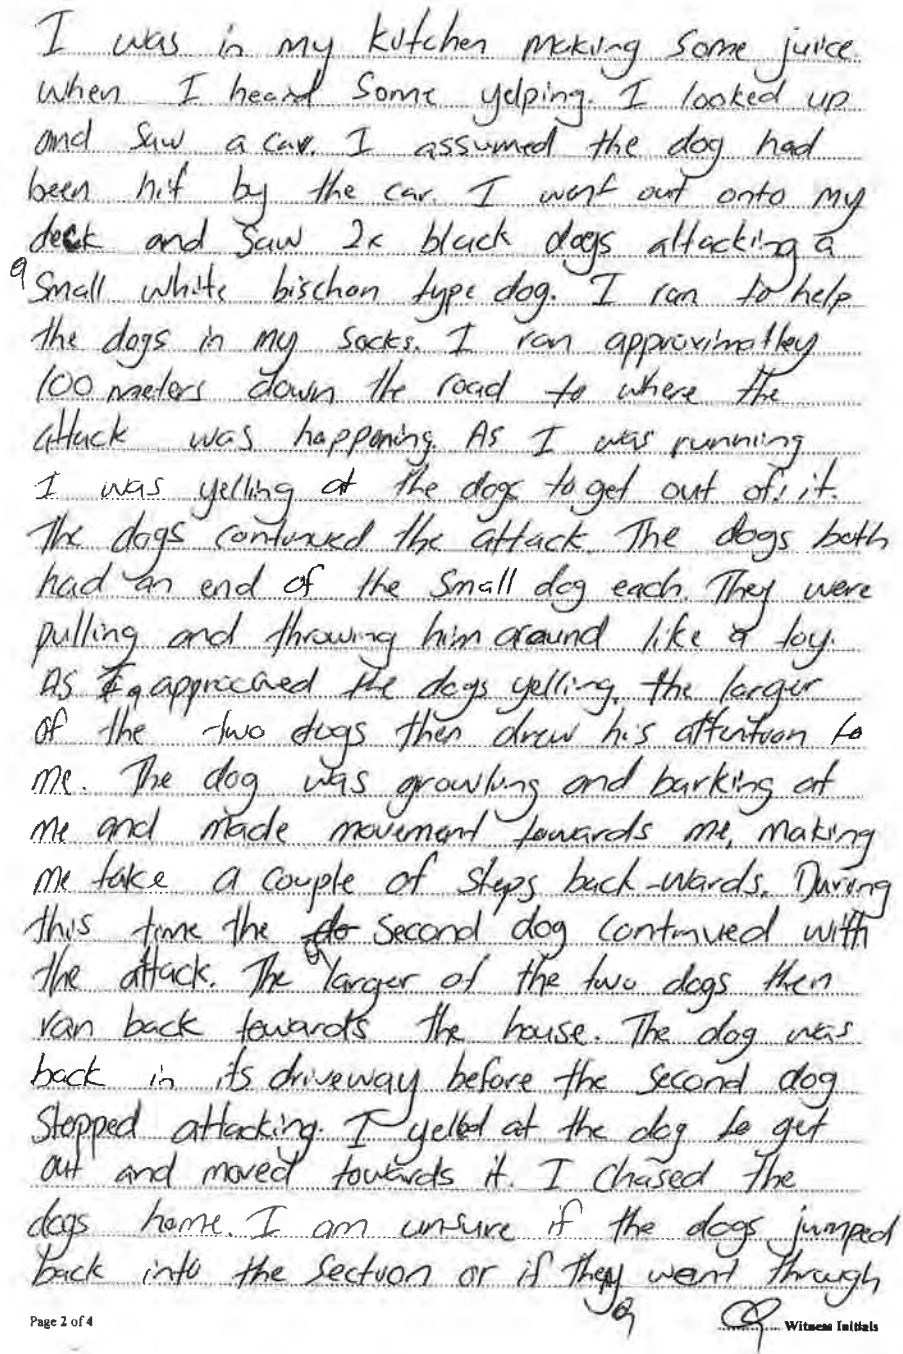 I was in my kitchen making some juice
when I heard some yelping. I looked up
and saw a car. I assumed the dog had
been hit by the car. I went out onto my
deck and saw 2x black dogs attacking a
small white bischon type dog. I ran to help
the dogs in my socks. I ran approximatley
100 meters down the road to where the
attack was happening. As I was running
I was yelling at the dogs to get out of it.
The dogs continued the attack. The dogs both
had an end of the small dog each. They were
pulling and throwing him around like a toy.
As I approached the dogs yelling, the larger
of the two dogs then drew his attention to
me. The dog was growling and barking at
me and made movement towards me, making
me take a couple of steps back-wards. During
this time the do second dog continued with
the attack. The larger of the two dogs then
ran back towards the house. The dog was
back in its driveway before the second dog
stopped attacking. I yelled at the dog to get
out and moved towards it. I chased the
dogs home. I am unsure if the dogs jumped
back into the section or if they went through
Page 2 of 4
Witness Initials